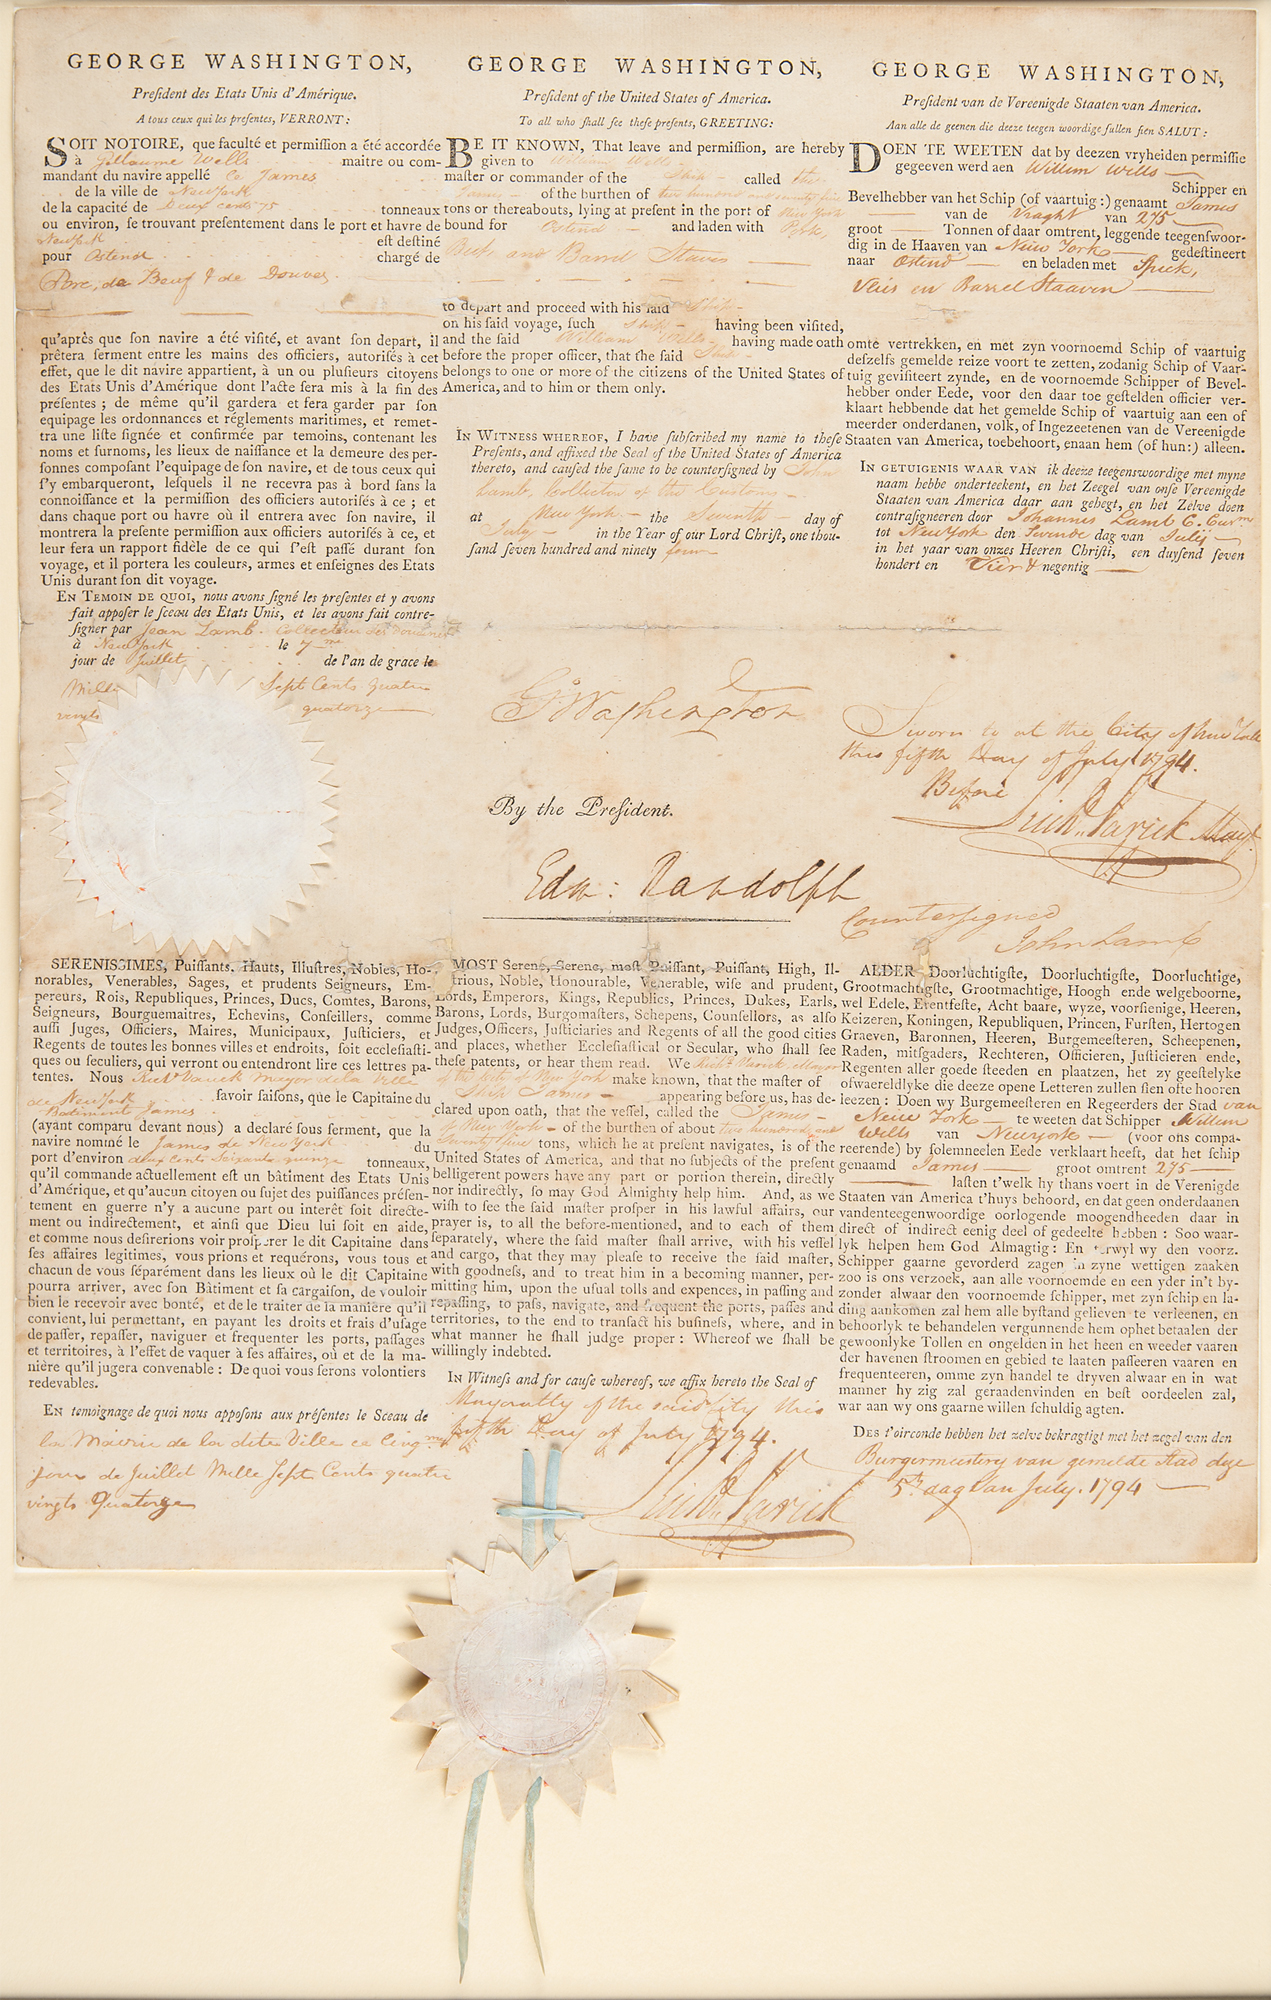 GEORGE WASHINGTON,
Preſident des Etats Unis d'Amérique.
A tous ceux qui les preſentes, VERRONT:
SOIT NOTOIRE, que faculté et permiſſion a été accordée
à Guillaume Wells maitre ou com-
mandant du navire appellé Le James
de la ville de NewYork
de la capacité de Deux cents 75 tonneaux
ou environ, ſe trouvant preſentement dans le port et havre de
NewYork eſt deſtiné
pour Ostend chargé de
Porc, de Beuf & de Douves
qu'après que ſon navire a été viſité, et avant ſon depart, il
prêtera ſerment entre les mains des officiers, autoriſés à cet
effet, que le dit navire appartient, à un ou pluſieurs citoyens
des Etats Unis d'Amérique dont l'acte ſera mis à la fin des
préſentes; de même qu'il gardera et fera garder par ſon
equipage les ordonnances et réglements maritimes, et remet-
tra une liſte ſignée et confirmée par temoins, contenant les
noms et ſurnoms, les lieux de naiſſance et la demeure des per-
ſonnes compoſant l'equipage de ſon navire, et de tous ceux qui
ſ'y embarqueront, leſquels il ne recevra pas à bord ſans la
connoiſſance et la permiſſion des officiers autoriſés à ce; et
dans chaque port ou havre où il entrera avec ſon navire, il
montrera la preſente permiſſion aux officiers autoriſés à ce, et
leur fera un rapport fidèle de ce qui ſ'eſt paſſé durant ſon
voyage, et il portera les couleurs, armes et enſeignes des Etats
Unis durant ſon dit voyage.
EN TEMOIN DE QUOI, nous avons ſigné les preſentes et y avons
fait appoſer le ſceau des Etats Unis, et les avons fait contre-
ſigner par Jean Lamb. Collecteur des Douanes
à NewYork le 7me
jour de Juillet de l'an de grace le
Mille Sept Cents quatre
vingts quatorze
GEORGE WASHINGTON,
Preſident of the United States of America.
To all who ſhall ſee theſe preſents, GREETING:
BE IT KNOWN, That leave and permiſſion, are hereby
given to William Wells
maſter or commander of the Ship called the
James of the burthen of two hundred and seventy five
tons or thereabouts, lying at preſent in the port of New York
bound for Ostend and laden with Pork,
Beef and Barrel Staves
to depart and proceed with his ſaid Ship
on his ſaid voyage, ſuch Ship having been viſited,
and the ſaid William Wells having made oath
before the proper officer, that the ſaid Ship
belongs to one or more of the citizens of the United States of
America, and to him or them only.
IN WITNESS WHEREOF, I have ſubſcribed my name to theſe
Preſents, and affixed the Seal of the United States of America
thereto, and cauſed the ſame to be counterſigned by John
Lamb, Collector of the Customs
at New York the Seventh day of
July in the Year of our Lord Chriſt, one thou-
ſand ſeven hundred and ninety four
GEORGE WASHINGTON,
Preſident van de Vereenigde Staaten van America.
Aan alle de geenen die deeze teegen woordige ſullen ſien SALUT:
DOEN TE WEETEN dat by deezen vryheiden permiſſie
gegeeven werd aen Willem Wells
Schipper en
Bevelhebber van het Schip (of vaartuig:) genaamt James
van de Vraght van 275
groot Tonnen of daar omtrent, leggende teegenſwoor-
dig in de Haaven van Neuw York gedeſtineert
naar Ostend en beladen met Speck,
Vleis en Barrel Staaven
omte vertrekken, en met zyn voornoemd Schip of vaartuig
deſzelfs gemelde reize voort te zetten, zodanig Schip of Vaar-
tuig geviſiteert zynde, en de voornoemde Schipper of Bevel-
hebber onder Eede, voor den daar toe geſtelden officier ver-
klaart hebbende dat het gemelde Schip of vaartuig aan een of
meerder onderdanen, volk, of Ingezeetenen van de Vereenigde
Staaten van America, toebehoort, enaan hem (of hun:) alleen.
IN GETUIGENIS WAAR VAN ik deeze teegenswoordige met myne
naam hebbe onderteekent, en het Zeegel van onſe Vereenigde
Staaten van America daar aan gehegt, en het Zelve doen
contraſigneeren door Johannes Lamb
tot NewYork den Sevende dag van July
in het yaar van onzes Heeren Chriſti, een duyſend ſeven
hondert en Vier & negentig
G:Washington
By the Preſident.
Edm: Randolph
Sworn to at the City of New York
this fifth Day of July 1794.
Before
Richd. Varick Mayr.
Countersigned
John Lamb
SERENISSIMES, Puiſſants, Hauts, Illuſtres, Nobles, Ho-
norables, Venerables, Sages, et prudents Seigneurs, Em-
pereurs, Rois, Republiques, Princes, Ducs, Comtes, Barons,
Seigneurs, Bourguemaitres, Echevins, Conſeillers, comme
auſſi Juges, Officiers, Maires, Municipaux, Juſticiers, et
Regents de toutes les bonnes villes et endroits, ſoit eccleſiaſti-
ques ou ſeculiers, qui verront ou entendront lire ces lettres pa-
tentes. Nous Richd Varick Mayor de la Ville
de NewYork ſavoir faiſons, que le Capitaine du
Batiment James
(ayant comparu devant nous) a declaré ſous ferment, que la
navire nominé le James de New York du
port d'environ deux Cents Soixante quinze tonneaux,
qu'il commande actuellement eſt un bâtiment des Etats Unis
d'Amérique, et qu'aucun citoyen ou ſujet des puiſſances préſen-
tement en guerre n'y a aucune part ou interêt ſoit directe-
ment ou indirectement, et ainſi que Dieu lui ſoit en aide,
et comme nous deſirerions voir proſperer le dit Capitaine dans
ſes affaires legitimes, vous prions et requérons, vous tous et
chacun de vous ſéparément dans les lieux où le dit Capitaine
pourra arriver, avec ſon Bâtiment et ſa cargaiſon, de vouloir
bien le recevoir avec bonté, et de le traiter de la maniere qu'il
convient, lui permettant, en payant les droits et frais d'uſage
de paſſer, repaſſer, naviguer et frequenter les ports, paſſages
et territoires, à l'effet de vaquer à ſes affaires, où et de la ma-
nière qu'il jugera convenable: De quoi vous ſerons volontiers
redevables.
EN temoignage de quoi nous appoſons aux préſentes le Sceau de
la Mairie de la dite Ville ce Cinqme
jour de Juillet Mille Sept Cents quatre
vingts Quatorze
MOST Serene, Serene, moſt Puiſſant, Puiſſant, High, Il-
luſtrious, Noble, Honourable, Venerable, wiſe and prudent,
Lords, Emperors, Kings, Republics, Princes, Dukes, Earls,
Barons, Lords, Burgomaſters, Schepens, Counſellors, as alſo
Judges, Officers, Juſticiaries and Regents of all the good cities
and places, whether Eccleſiaſtical or Secular, who ſhall ſee
theſe patents, or hear them read. We Richd Varick, Mayor
of the City of New York make known, that the maſter of
Ship James appearing before us, has de-
clared upon oath, that the veſſel, called the James
of New York of the burthen of about two hundred and
Seventy five tons, which he at preſent navigates, is of the
United States of America, and that no ſubjects of the preſent
belligerent powers have any part or portion therein, directly
nor indirectly, ſo may God Almighty help him. And, as we
wiſh to ſee the ſaid maſter proſper in his lawful affairs, our
prayer is, to all the before-mentioned, and to each of them
ſeparately, where the ſaid maſter ſhall arrive, with his veſſel
and cargo, that they may pleaſe to receive the ſaid maſter,
with goodneſs, and to treat him in a becoming manner, per-
mitting him, upon the uſual tolls and expences, in paſſing and
repaſſing, to paſs, navigate, and frequent the ports, paſſes and
territories, to the end to tranſact his buſineſs, where, and in
what manner he ſhall judge proper: Whereof we ſhall be
willingly indebted.
In Witneſs and for cauſe whereof, we affix hereto the Seal of
Mayoralty of the said City this
fifth Day of July 1794.
Richd. Varick
ALDER Doorluchtigſte, Doorluchtigſte, Doorluchtige,
Grootmachtigſte, Grootmachtige, Hoogh ende welgeboorne,
wel Edele, Erentfeſte, Acht baare, wyze, voorſienige, Heeren,
Keizeren, Koningen, Republiquen, Princen, Furſten, Hertogen
Graeven, Baronnen, Heeren, Burgemeeſteren, Scheepenen,
Raden, mitſgaders, Rechteren, Officieren, Juſticieren ende,
Regenten aller goede ſteeden en plaatzen, het zy geeſtelyke
ofwaereldlyke die deeze opene Letteren zullen ſien ofte hooren
leezen: Doen wy Burgemeeſteren en Regeerders der Stad van
Neuw York te weeten dat Schipper Willem
Wells van Neuwyork (voor ons compa-
reerende) by ſolemneelen Eede verklaart heeft, dat het ſchip
genaamd James groot omtrent 275
laſten t'welk hy thans voert in de Verenigde
Staaten van America t'huys behoord, en dat geen onderdaanen
vandenteegenwoordige oorlogende moogendheeden daar in
direct of indirect eenig deel of gedeelte hebben: Soo waar-
lyk helpen hem God Almagtig: En terwyl wy den voorz.
Schipper gaarne gevorderd zagen in zyne wettigen zaaken
zoo is ons verzoek, aan alle voornoemde en een yder in't by-
zonder alwaar den voornoemde ſchipper, met zyn ſchip en la-
ding aankomen zal hem alle byſtand gelieven te verleenen, en
behoorlyk te behandelen vergunnende hem ophet betaalen der
gewoonlyke Tollen en ongelden in het heen en weeder vaaren
der havenen ſtroomen en gebied te laaten paſſeeren vaaren en
frequenteeren, omme zyn handel te dryven alwaar en in wat
manner hy zig zal geraadenvinden en beſt oordeelen zal,
war aan wy ons gaarne willen ſchuldig agten.
DES t'oirconde hebben het zelve bekragtigt met het zegel van den
Burgermeestery van gemelde Stad deze
5th dag Van July. 1794